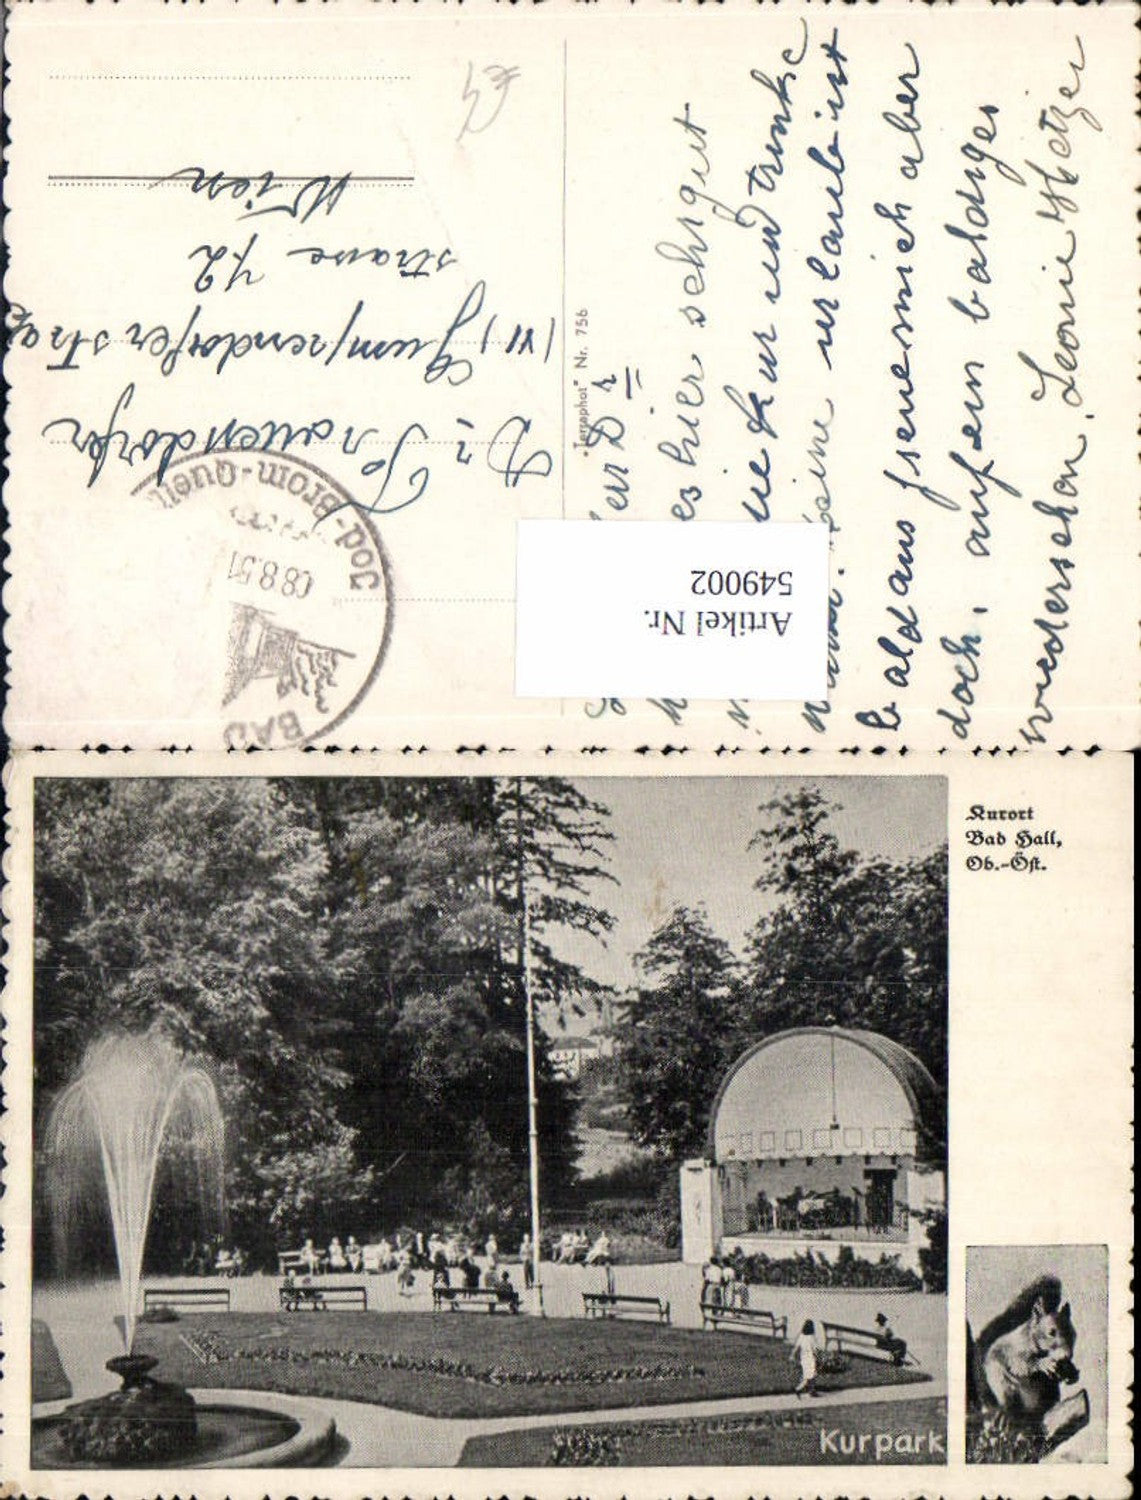 Dr. Frauendorfer
(VI) Gumpendorfer straße
strasse 42
Wien
"Terraphot" Nr. 756
Jod-Brom-Quell
08.8.51
BAD
Artikel Nr.
549002
Herr Dr
es hier sehr gut
die Kur und trinke
meine urlaub ist
bald aus freue mich aber
doch, auf ein baldiges
wiedersehen. Leonie Metzer
Kurort
Bad Hall,
Ob.-Öst.
Kurpark